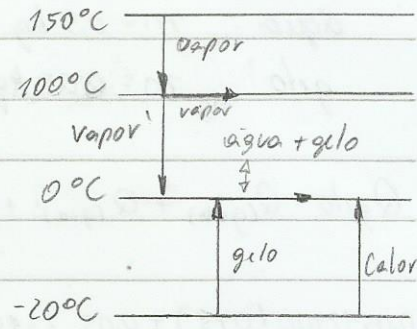 150°C
vapor
100°C
vapor
vapor
água + gelo
0°C
gelo
Calor
-20°C